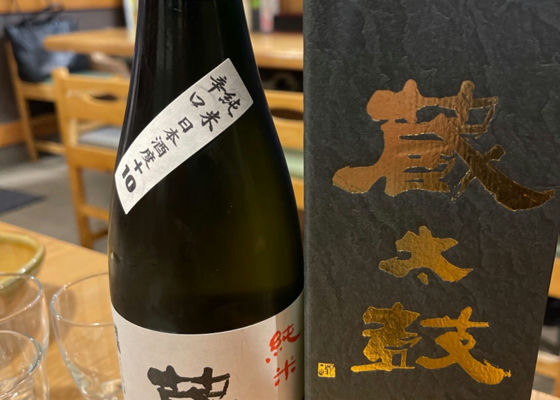 純米
辛口 日本酒度+10
純米
蔵
蔵太鼓